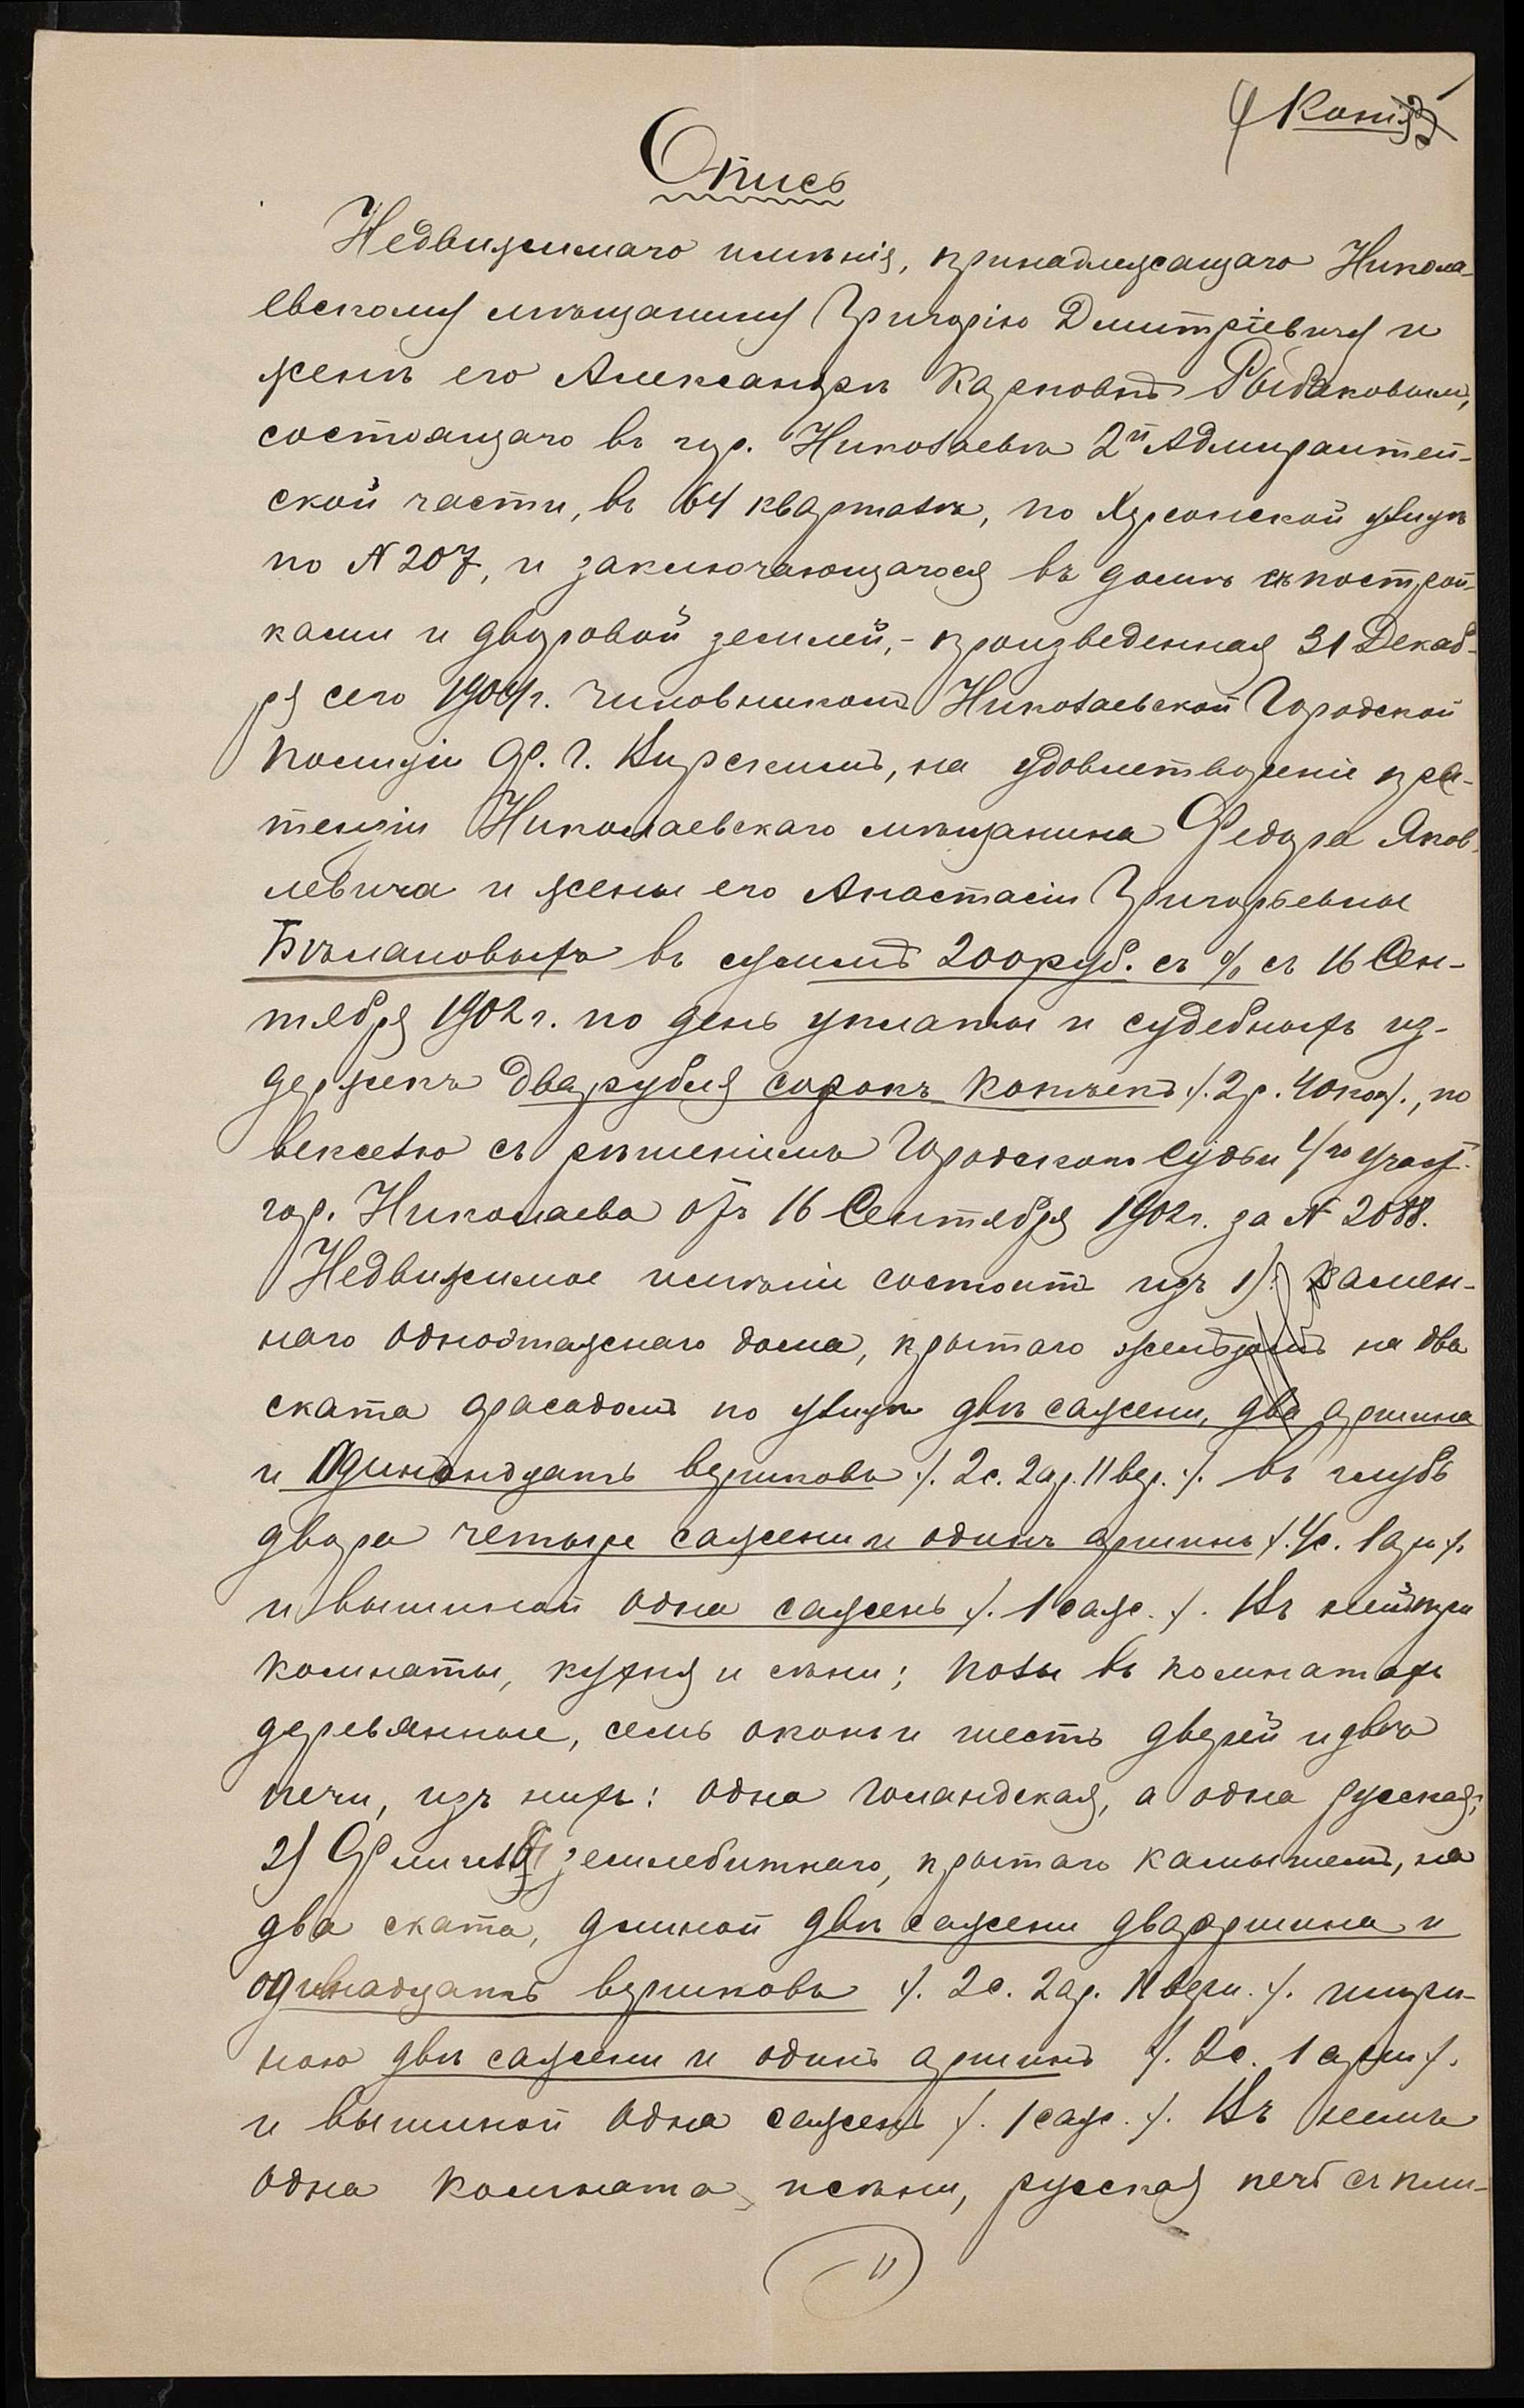 Копія
Опись
Недвижимаго имѣнія, принадлежащаго Никола-
евскому мѣщанину Григорію Дмитріевичу и
женѣ его Александрѣ Карповнѣ Рыбаковымъ,
состоящаго въ гор. Николаевѣ 2й Адмиралтей-
ской части, въ 64 кварталѣ, по Херсонской улицѣ
по № 207, и заключающагося въ домѣ съ построй-
ками и дворовой землей,- произведенная 31 Декаб-
ря сего 1904 г. чиновникомъ Николаевской Городской
Полиціи Ф. Г. Кирскимъ, на удовлетвореніе пре-
тензіи Николаевскаго мѣщанина Федора Яков-
левича и жены его Анастасіи Григорьевны
Бѣлановыхъ въ суммѣ 200 руб. съ % съ 16 Сен-
тября 1902 г. по день уплаты и судебныхъ из-
держекъ два рубля сорокъ копѣекъ /. 2 р. 40 коп /., по
векселю съ рѣшеніемъ Городского Судьи 4го участ.
гор. Николаева отъ 16 Сентября 1902 г. за № 2088.
Недвижимое имѣніе состоитъ изъ 1) Камен-
наго одноэтажнаго дома, крытаго желѣзомъ на два
ската фасадомъ по улицѣ двѣ сажени, два аршина
и одинандцать вершковъ /. 2 с. 2 ар. 11 вер. /. въ глубь
двора четыре сажени и одинъ аршинъ /. 4 с. 1 арш /.
и вышиной одна сажень /. 1 саж. /. Въ ней три
комнаты, кухня и сѣни; полы въ комнатахъ
деревянные, семь оконъ и шесть дверей и двѣ
печи, изъ нихъ: одна голандская, а одна русская;
2) Флигеля землебитнаго, крытаго камышемъ, на
два ската, длиной двѣ сажени два аршина и
одинадцать вершковъ /. 2 с. 2 ар. 11 верш. /. шири-
ною двѣ сажени и одинъ аршинъ /. 2 с. 1 арш /.
и вышиной одна сажень /. 1 саж. /. Въ немъ
одна комната, и сѣни, русская печь съ пли-
11